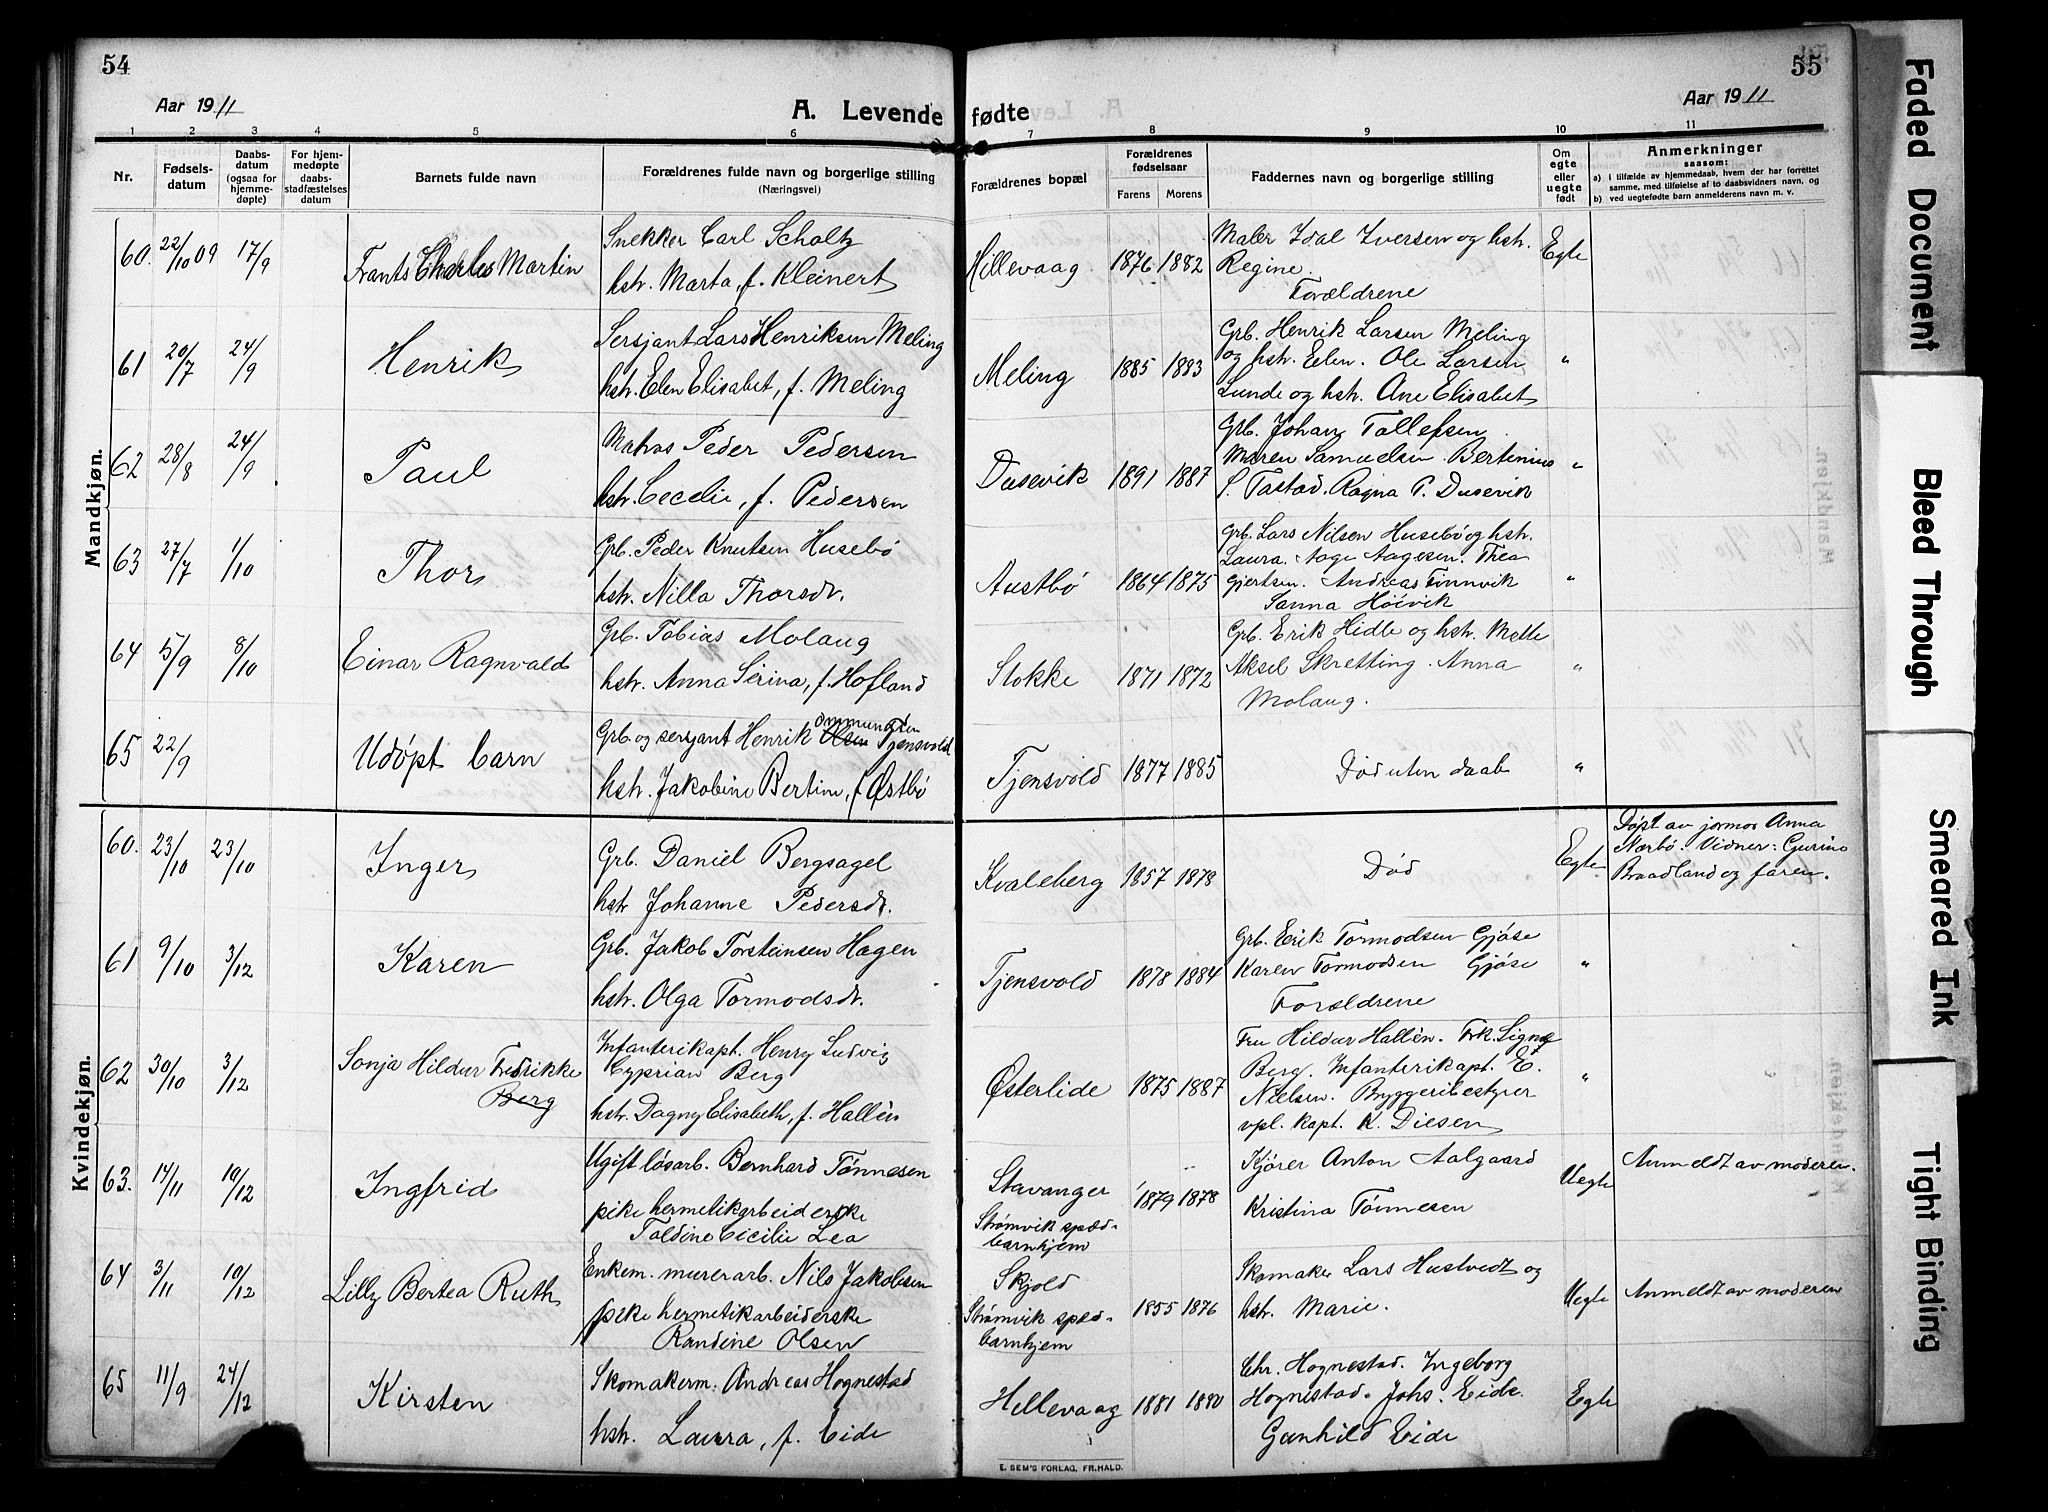 54
55
Aar 1911
A. Levende fødte
Aar 1911
1 2 3 4 5 6 7 8 9 10 11
Nr.
Fødsels-
datum
Daabs-
datum
(ogsaa for
hjemme-
døpte)
For hjem-
medøpte
daabs-
stadfæstelses
datum
Barnets fulde navn
Forældrenes fulde navn og borgerlige stilling
(Næringsvei)
Forældrenes bopæl
Forældrenes
fødselsaar
Farens Morens
Faddernes navn og borgerlige stilling
Om
egte
eller
uegte
født
Anmerkninger
saasom:
a) i tilfælde av hjemmedaab, hvem der har forrettet
samme, med tilføielse af to daabsvidners navn, og
b) ved uegtefødte barn anmelderens navn m. v.
Mandkjøn.
60. 22/10 09 17/9 Frants Charles Martin
Snekker Carl Scholtz
hstr. Marta, f. Kleinert
Hillevaag 1876 1882
Maler Idal Iversen og hstr.
Regine.
Forældrene
Egte
61 20/7 24/9 Henrik
Sersjant Lars Henriksen Meling
hstr. Elen Elisabet, f. Meling
Meling 1885 1883
Grb. Henrik Larsen Meling
og hstr. Elen. Ole Larsen
Lunde og hstr. Ane Elisabet
"
62 28/8 24/9 Paul
Matros Peder Pedersen
hstr. Cecelie, f. Pedersen
Dusevik 1891 1887
Grb. Johan Tollefsen
Maren Samuelsen. Bertinius
S. Tastad. Ragna P. Dusevik
"
63 27/7 1/10 Thor
Grb. Peder Knutsen Husebø
hstr. Nilla Thorsdr.
Austbø 1864 1875
Grb. Lars Nilsen Husebø og hstr.
Laura. Aage Aagesen. Thea
Gjertsen. Andreas Finnvik
Sanna Høivik
"
64 5/9 8/10 Einar Ragnvald
Grb. Tobias Molaug
hstr. Anna Serina, f. Hofland
Stokke 1871 1872
Grb. Erik Hidle og hstr. Mette
Aksel Skretting. Anna
Molaug.
"
65 22/9 Udøpt barn
Ommundsen
Grb. og sersjant Henrik Olsen Tjensvold
hstr. Jakobine Bertine, f. Østbø
Tjensvold 1877 1885
Død uten daab
"
Kvindekjøn.
60. 23/10 23/10 Inger
Grb. Daniel Bergsagel
hstr Johanne Pedersdr.
Kvaleberg 1857 1878
Død
Egte
Døpt av jormor Anna
Nærbø. Vidner: Gurine
Braadland og faren.
61 9/10 3/12 Karen
Grb. Jakob Torsteinsen Hagen
hstr. Olga Tormodsdr.
Tjensvold 1878 1884
Grb. Erik Tormodsen Gjøse
Karen Tormodsen Gjøse
Forældrene
"
62 30/10 3/12 Sonja Hildur Fredrikke
Berg
Infanterikapt. Henry Ludvig
Cyprian Berg
hstr. Dagny Elisabeth, f. Hallén
Østerlide 1875 1887
Fru Hildur Hallén. Frk. Signe
Berg. Infanterikapt. E.
Nielsen. Bryggeribestyrer
vpl. kapt. K. Diesen
"
63. 14/11 10/12 Ingfrid
Ugift løsarb. Bernhard Tønnesen
pike hermetikarbeiderske
Taldine Cicilie Lea
Stavanger
Strømvik spæd-
barnhjem
1879 1878
Kjører Anton Aalgaard
Kristina Tønnesen
Uegte
Anmeldt av moderen.
64 3/11 10/12 Lilly Bertea Ruth
Enkem. murerarb. Nils Jakobsen
pike hermetikarbeiderske
Randine Olsen
Skjold
Strømvik spæd-
barnhjem
1855 1876
Skomaker Lars Hustvedt og
hstr. Marie.
Uegte
Anmeldt av moderen
65 11/9 24/12 Kirsten
Skomakerm. Andreas Hognestad
hstr. Laura, f. Eide
Hellevaag 1881 1880
Chr. Hognestad. Ingeborg
Hognestad. Johs. Eide.
Gunhild Eide
Egte
E. SEM'S FORLAG, FR.HALD.
Faded Document
Bleed Through
Smeared Ink
Tight Binding